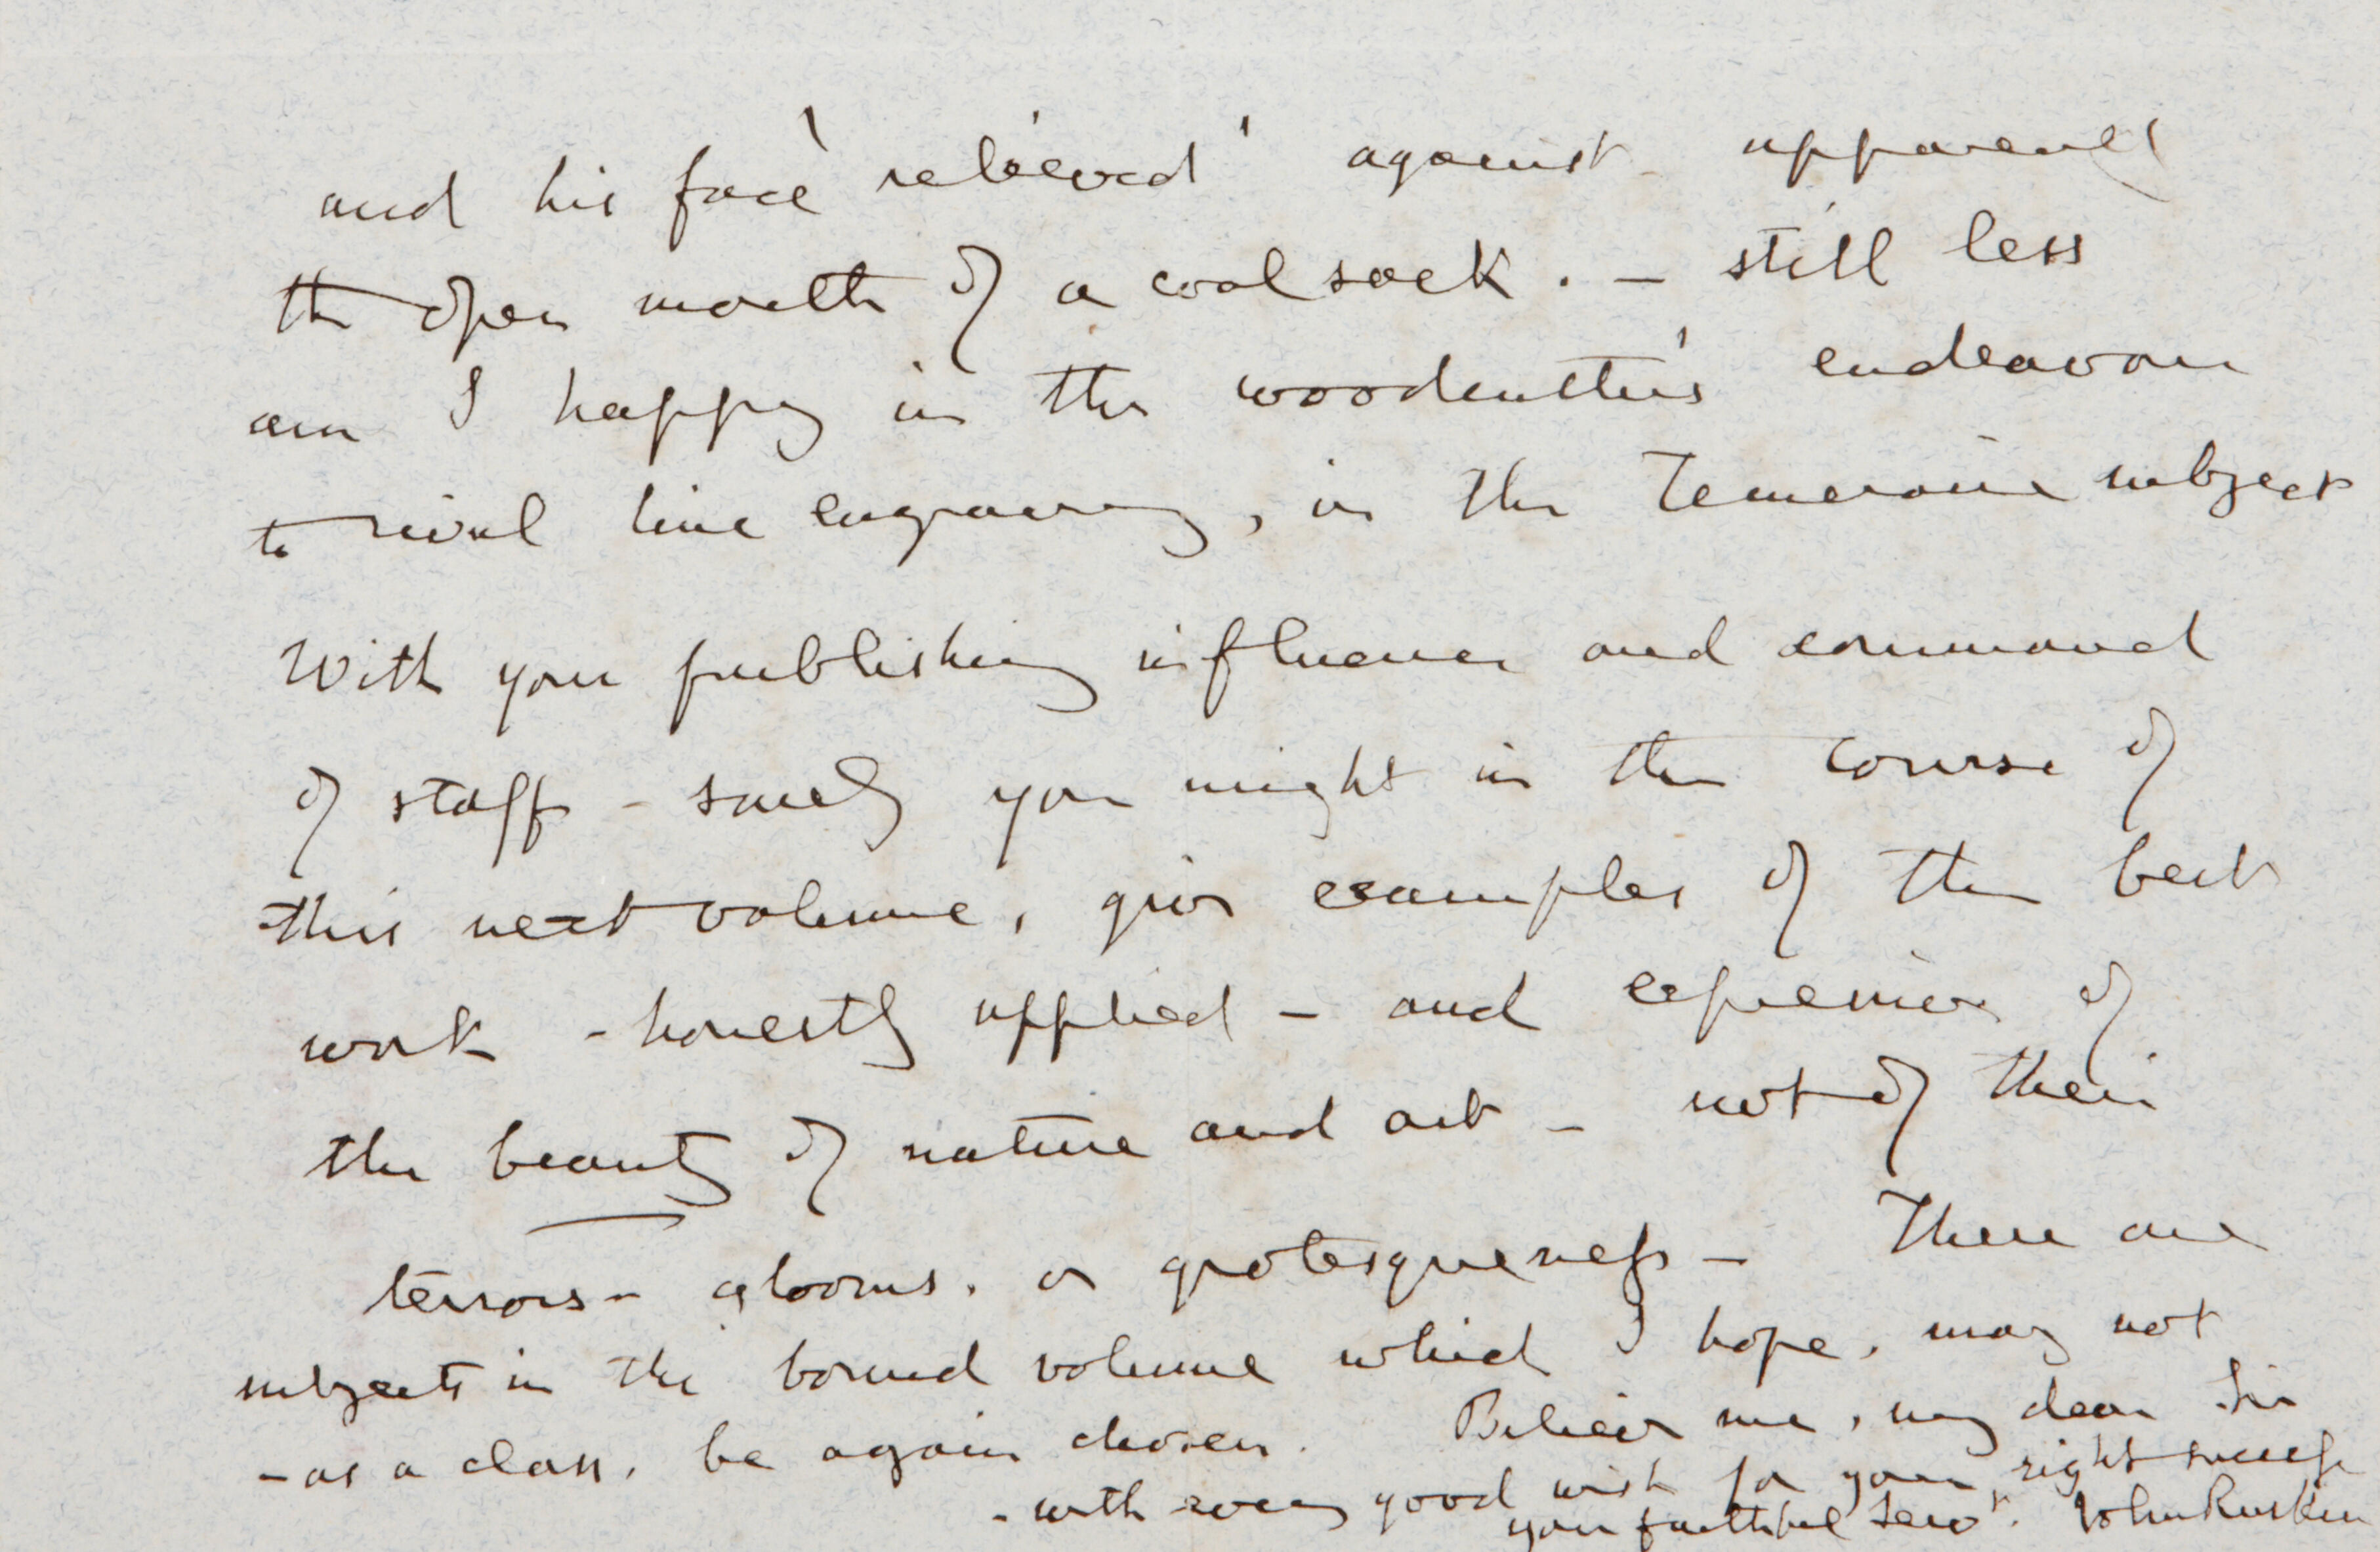 and his face 'relieved' against apparently
the open mouth of a coal sack. – still less
am I happy in the woodcutter's endeavour
to rival line engraving, in the Temeraire subject
With your publishing influence and command
of staff – surely you might in the course of
this next volume, give examples of the best
work – honestly applied – and expressive of
the beauty of nature and art – not of their
terrors – glooms, or grotesqueness – There are
subjects in the bound volume which I hope, may not
– as a class, be again chosen. Believe me, my dear Sir
– with every good wish for your right success
your faithful servt. John Ruskin